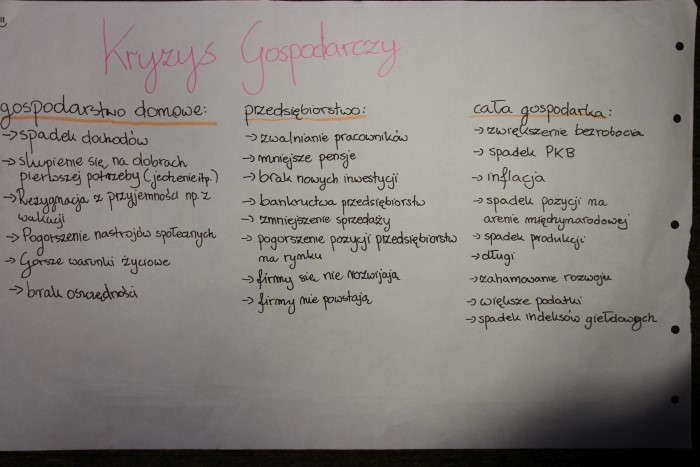 Kryzys Gospodarczy
gospodarstwo domowe:
→ spadek dochodów
→ skupienie się na dobrach
pierwszej potrzeby (jedzenie itp.)
→ Rezygnacja z przyjemności np. z
wakacji
→ Pogorszenie nastrojów społecznych
→ Gorsze warunki życiowe
→ brak oszczędności
przedsiębiorstwo:
→ zwalnianie pracowników
→ mniejsze pensje
→ brak nowych inwestycji
→ bankructwa przedsiębiorstw
→ zmniejszenie sprzedaży
→ pogorszenie pozycji przedsiębiorstw
na rynku
→ firmy się nie rozwijają
→ firmy nie powstają
cała gospodarka:
→ zwiększenie bezrobocia
→ spadek PKB
→ inflacja
→ spadek pozycji na
arenie międzynarodowej
→ spadek produkcji
→ długi
→ zahamowanie rozwoju
→ większe podatki
→ spadek indeksów giełdowych